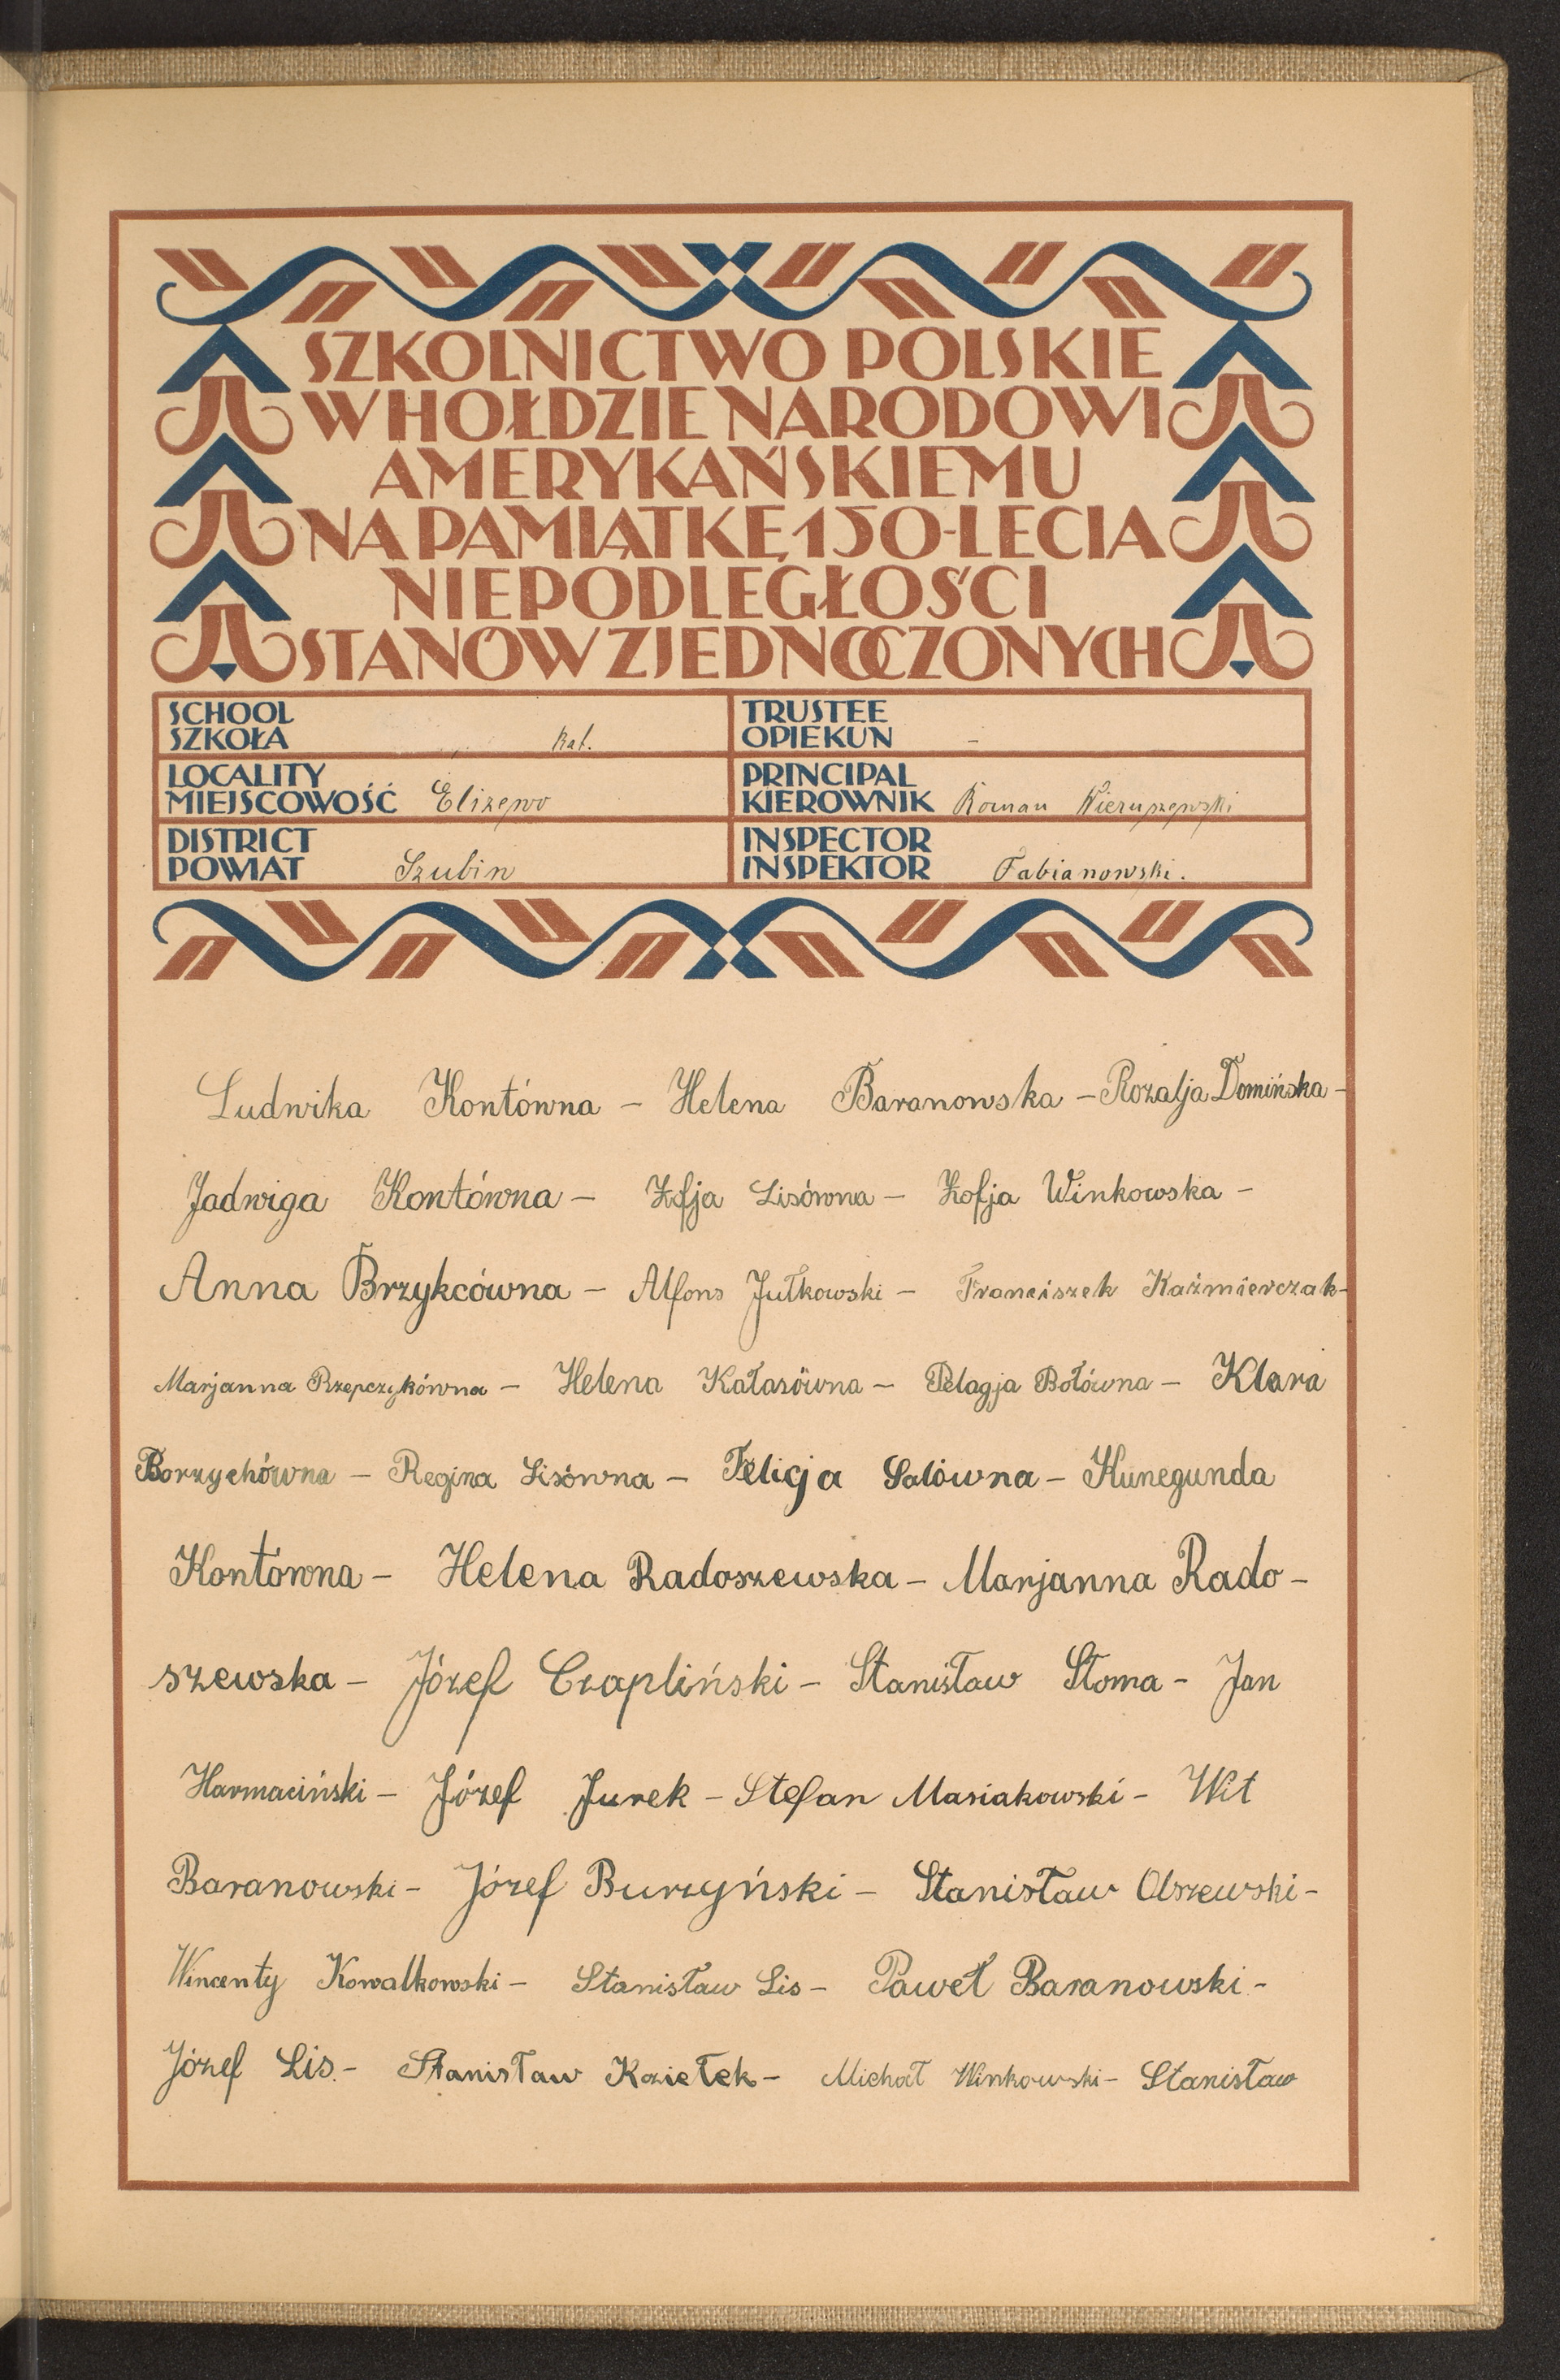 SZKOLNICTWO POLSKIE
W HOŁDZIE NARODOWI
AMERYKAŃSKIEMU
NA PAMIĄTKĘ 150-LECIA
NIEPODLEGŁOŚCI
STANÓW ZJEDNOCZONYCH
SCHOOL
SZKOŁA kat.
TRUSTEE
OPIEKUN –
LOCALITY
MIEJSCOWOŚĆ Elizewo
PRINCIPAL
KIEROWNIK Roman Wieruszewski
DISTRICT
POWIAT Szubin
INSPECTOR
INSPEKTOR Fabianowski.
Ludwika Kontówna – Helena Baranowska – Rozalja Domińska –
Jadwiga Kontówna – Zofja Lisówna – Zofja Winkowska –
Anna Brzykcówna – Alfons Jutkowski – Franciszek Kaźmierczak –
Marjanna Rzepczykówna – Helena Kałasówna – Pelagja Botówna – Klara
Borzychówna – Regina Lisówna – Felicja Salówna – Kunegunda
Kontówna – Helena Radoszewska – Marjanna Rado –
szewska – Józef Czapliński – Stanisław Słoma – Jan
Harmaciński – Józef Jurek – Stefan Masiakowski – Wit
Baranowski – Józef Burzyński – Stanisław Olszewski –
Wincenty Kowalkowski – Stanisław Lis – Paweł Baranowski –
Józef Lis. – Stanisław Koziełek – Michał Winkowski – Stanisław